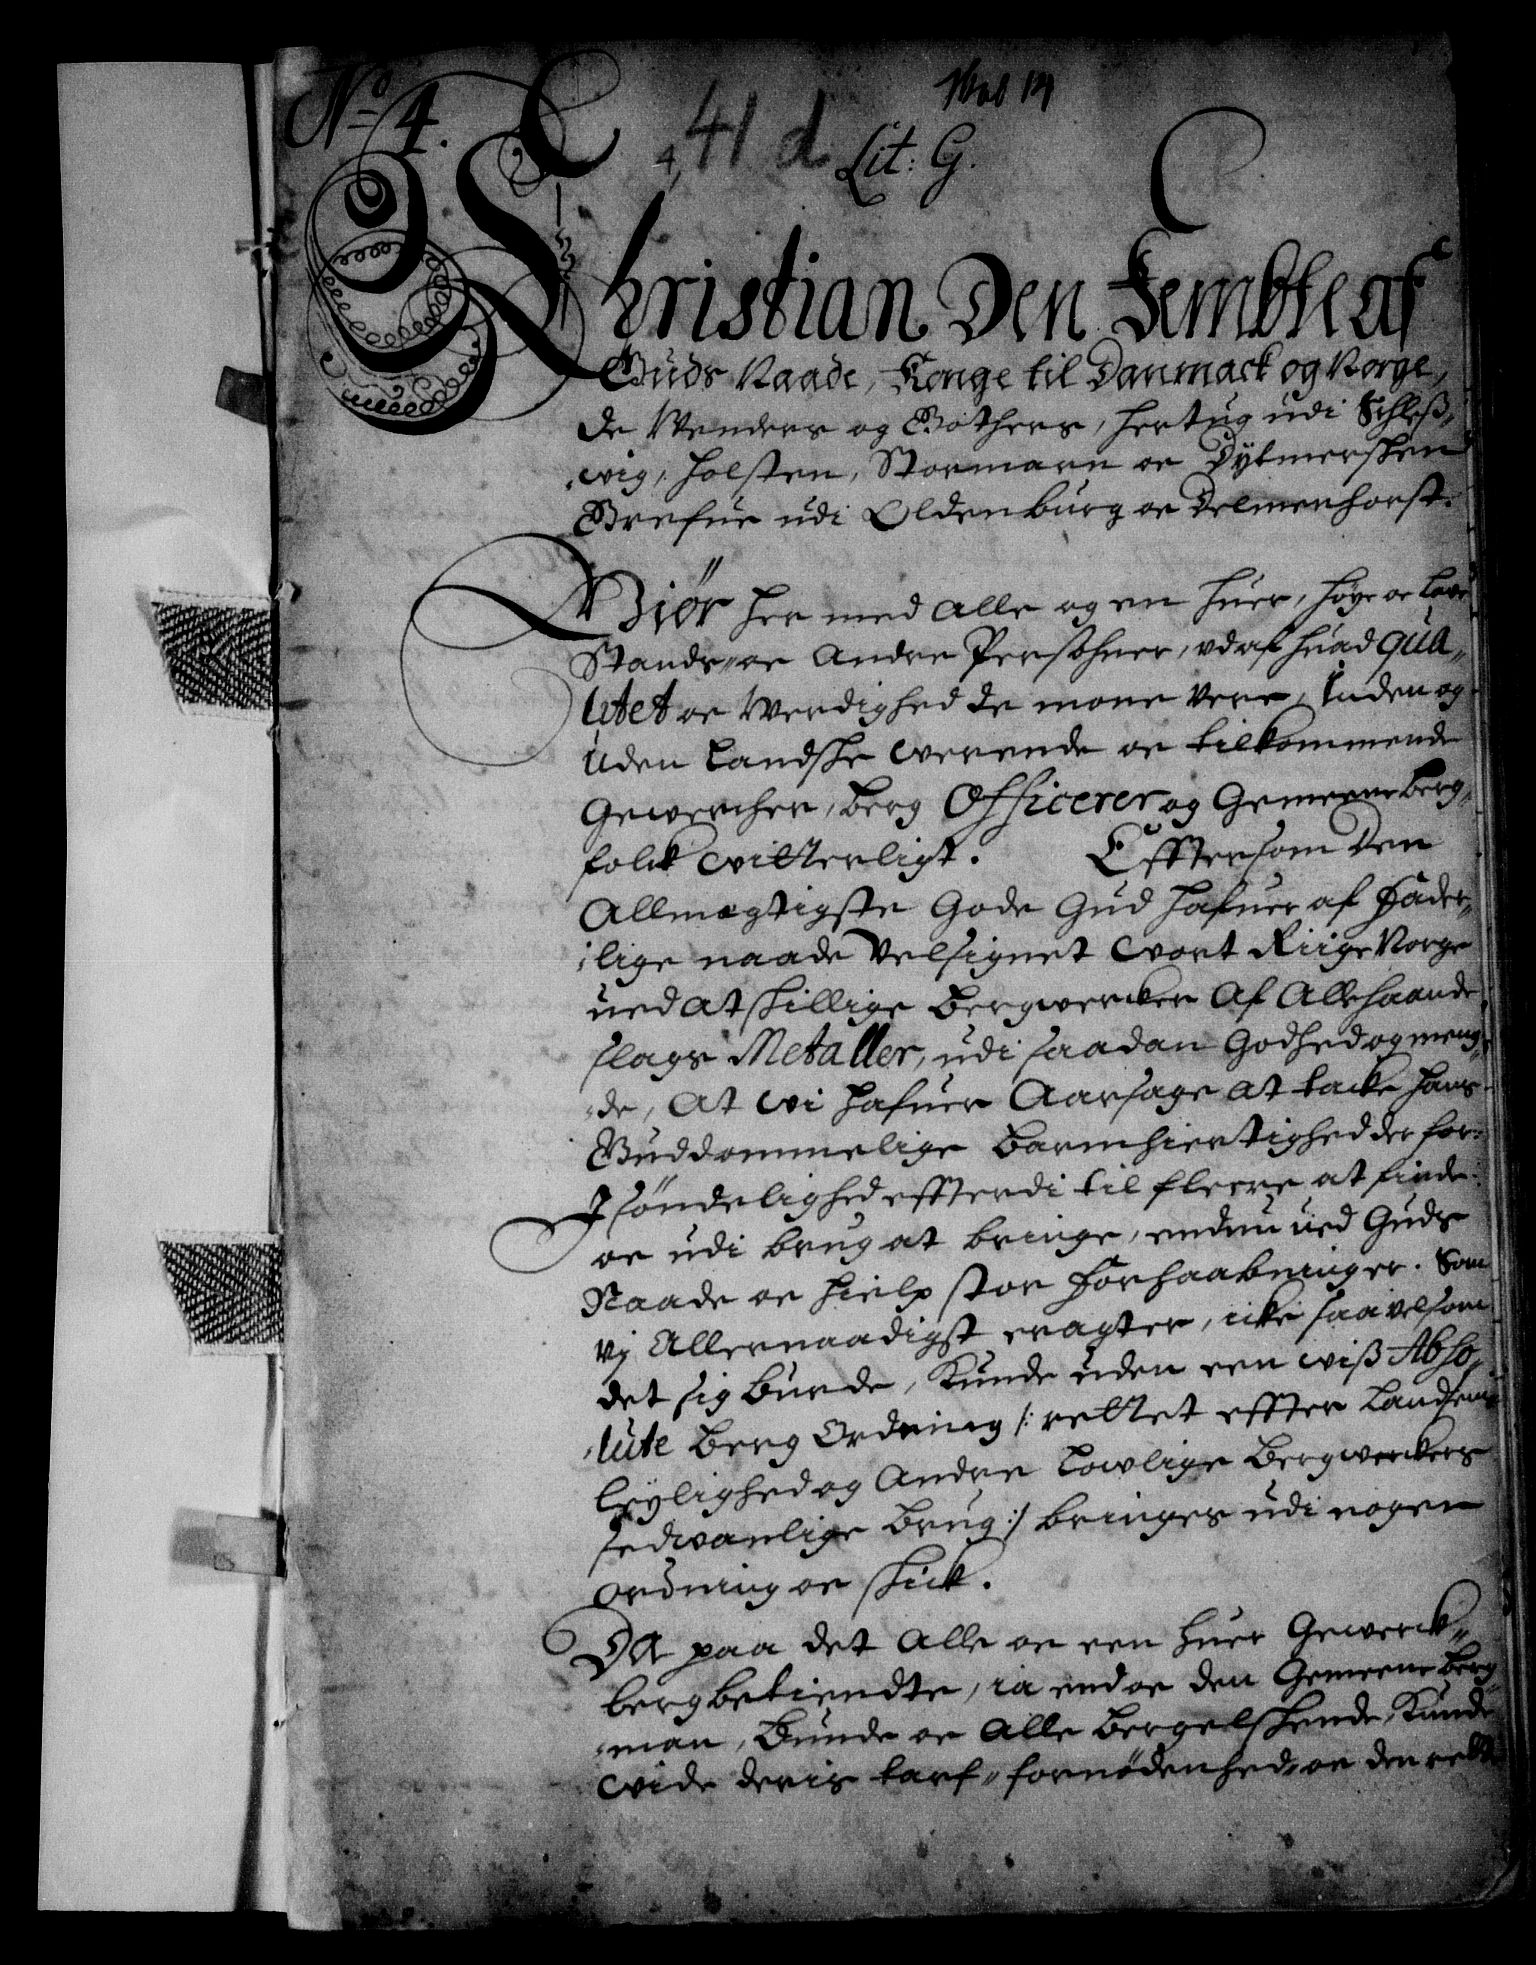 No 4.
41 d
Lit: G.
Christian Den Fembte af
Guds Naade, Konge til Danmack og Norge,
de Wenders og Gothers, Hertug udi Schleß„
„wig, Holsten, Stormarn oc Dytmersken
Grefue udi Oldenburg oc Delmenhorst.
Giør her med alle og en huer, høye oc Laue
Stands„ oc andre Persohner, vdaf huad qua„
litet oc Werdighed de mone vere, Inden og
uden Landske werende oc tilkommende
Gewercher, berg Officerer og Gemeene berg„
folck witterligt. Efftersom Den
Allmegtigste Gode Gud hafuer af Fader„
„lige naade Velsignet wort Riige Norge
ued atskillige bergwercker af allehaande
slags Metaller, udi saadan Godhed og meng„
„de, at wi hafuer Aarsage at tacke hans
Guddommelige barmhiertighed der for:
I søndelighed effterdi til fleere at finde
oc udi brug at bringe, endnu ued Guds
Naade oc hielp stor Forhaabninger. Som
vj Allernaadigst eragter, icke saauelsom
det sig burde, Kunde uden een wiß Abso„
„lute berg Ordning /: rettet effter Landsens
leylighed og andre Lowlige bergwerckers
sedwanlige brug :/ bringes udi nogen
ordning oc skick.
Da paa det alle oc een huer Gewerck„
berg betiendte, ia end oc den Gemeene berg„
„man, Bunde oc alle bergelskende, Kunde
wide deris tarf„ fornødenhed„ oc den rette